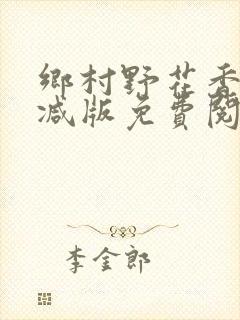 鄉村野花香
减版免費閱
李金郎